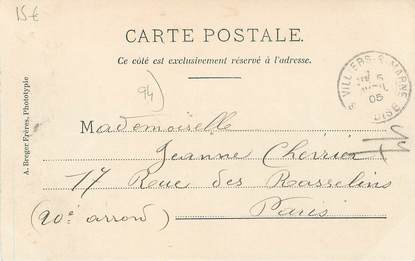 15€
CARTE POSTALE.
Ce côté est exclusivement réservé à l'adresse.
94
VILLIERS-S-MARNE
5
05
OISE
A. Breger Frères, Phototypie
Mademoiselle
Jeanne Cherrier
17 Rue des Rasselins
(20e arrond) Paris